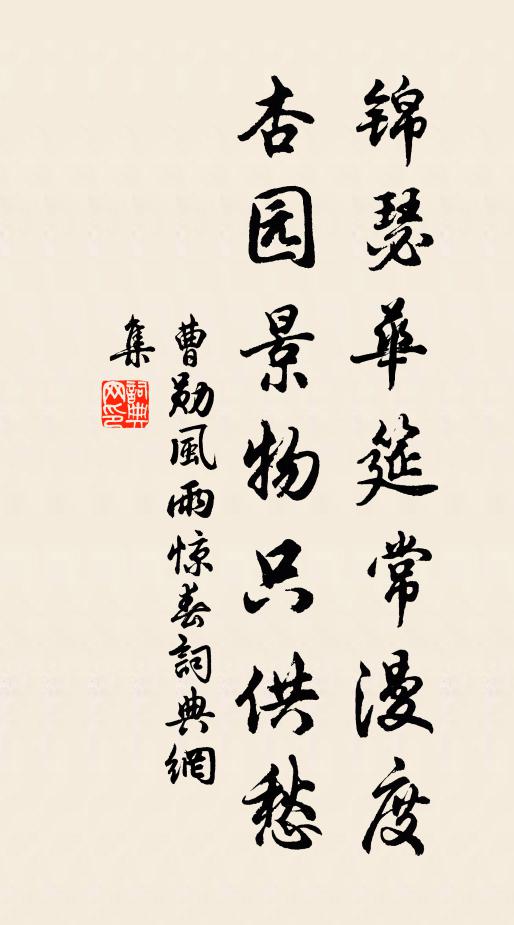 锦瑟华筵常漫度
杏园景物只供愁
曹勋風雨惊春詞典網
集
詞典网印